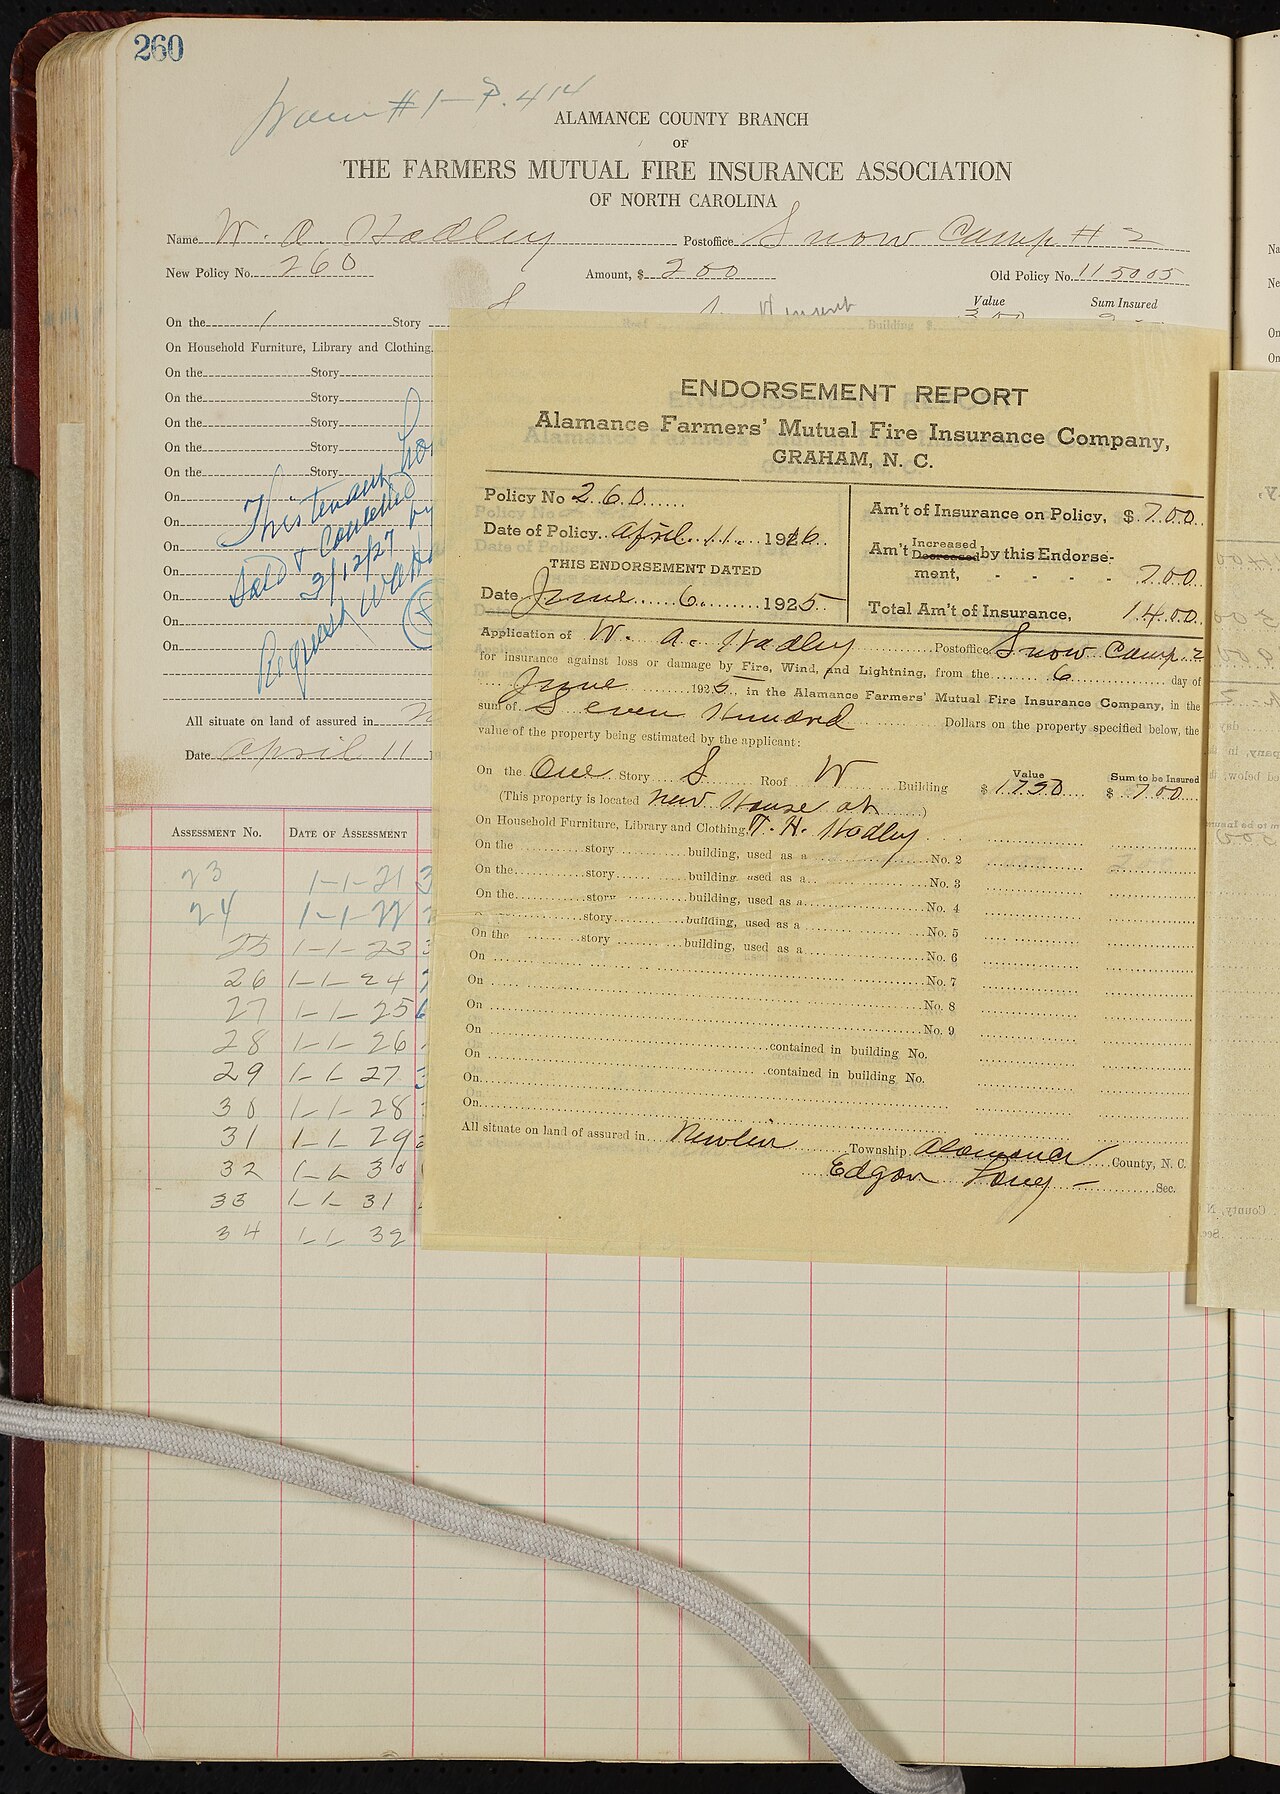 260
from #1 - P. 414
ALAMANCE COUNTY BRANCH
OF
THE FARMERS MUTUAL FIRE INSURANCE ASSOCIATION
OF NORTH CAROLINA
Name W. A. Hadley Postoffice Snow Camp # 2
New Policy No. 260 Amount, $ 200 Old Policy No. 115005
Value Sum Insured
On the 1 Story
On Household Furniture, Library and Clothing
On the Story
On the Story
On the Story
On the Story
On the Story
On
On
On
On
On
On
On
This tenant
Sold & Cancelled
3/12/27 by
Request W A H
All situate on land of assured in
Date April 11
ASSESSMENT No. DATE OF ASSESSMENT
23 1-1-21
24 1-1-22
25 1-1-23
26 1-1-24
27 1-1-25
28 1-1-26
29 1-1-27
30 1-1-28
31 1-1-29
32 1-1-30
33 1-1-31
34 1-1-32
ENDORSEMENT REPORT
Alamance Farmers' Mutual Fire Insurance Company,
GRAHAM, N. C.
Policy No 260
Date of Policy April 11 1916
THIS ENDORSEMENT DATED
Date June 6 1925
Am't of Insurance on Policy, $ 700
Am't Increased Decreased by this Endorsement, - - - - 700
Total Am't of Insurance, 1400
Application of W. A. Hadley Postoffice Snow Camp 2
for insurance against loss or damage by Fire, Wind, and Lightning, from the 6 day of
June 1925 in the Alamance Farmers' Mutual Fire Insurance Company, in the
sum of Seven Hundred Dollars on the property specified below, the
value of the property being estimated by the applicant:
Value Sum to be Insured
On the One Story S Roof W Building $ 1750 $ 700
(This property is located New House at )
On Household Furniture, Library and Clothing, T. H. Hadley
On the story building, used as a No. 2
On the story building, used as a No. 3
On the story building, used as a No. 4
story building, used as a No. 5
On the story building, used as a No. 6
On No. 7
On No. 8
On No. 9
On contained in building No.
On contained in building No.
On
On
All situate on land of assured in Newlin Township Alamance County, N. C.
Edgar Long - Sec.